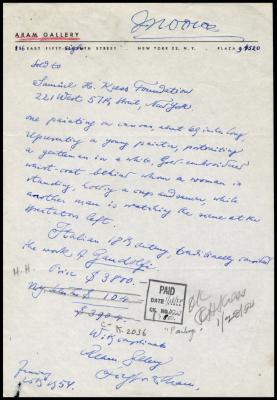 Invoice
ARAM GALLERY
EAST FIFTY-EIGHTH STREET NEW YORK 22, N.Y. PLAZA 9
Sold to
Samuel H. Kress Foundation
221 West 57th Street, New York
one painting on canvas, about
representing a young painter, portraying
a gentleman in a white, gold embroidered
waist-coat behind whom a woman is
standing, holding a cup and saucer, while
another man is watching the scene at the
spectators left.
Italian 18th century, traditionally considered
the work of Gandolfi.
H.H. Price $3800.-
104.-
$3904.-
PAID
DATE
CK. NO.
K. 2036
"Painting"
OK
RHKress
1/28/54
With compliments
Aram Gallery
1954.